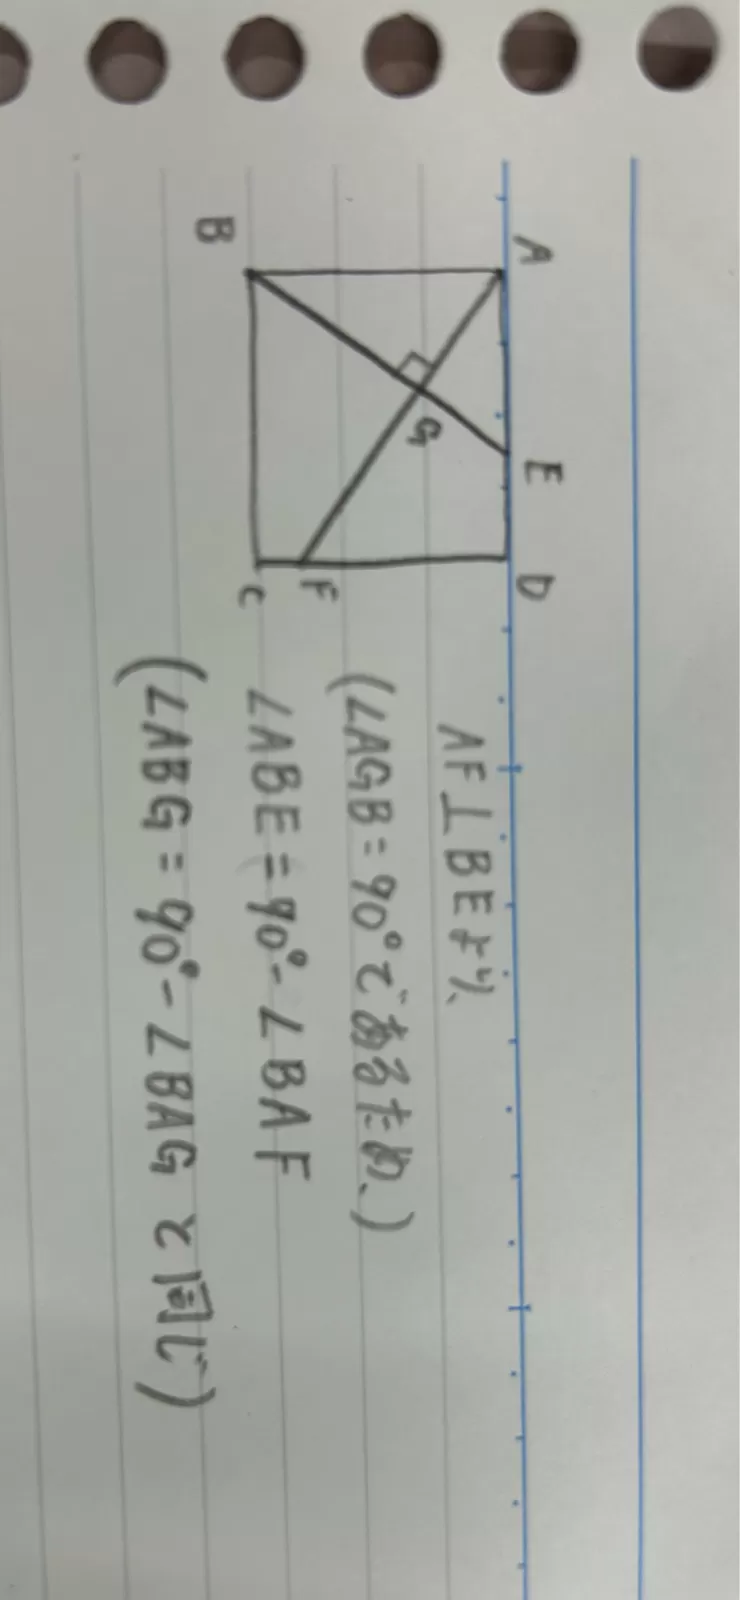 A E D
G
F
B C
AF⊥BEより、
(∠AGB=90°であるため、)
∠ABE=90°-∠BAF
(∠ABG=90°-∠BAGと同じ)